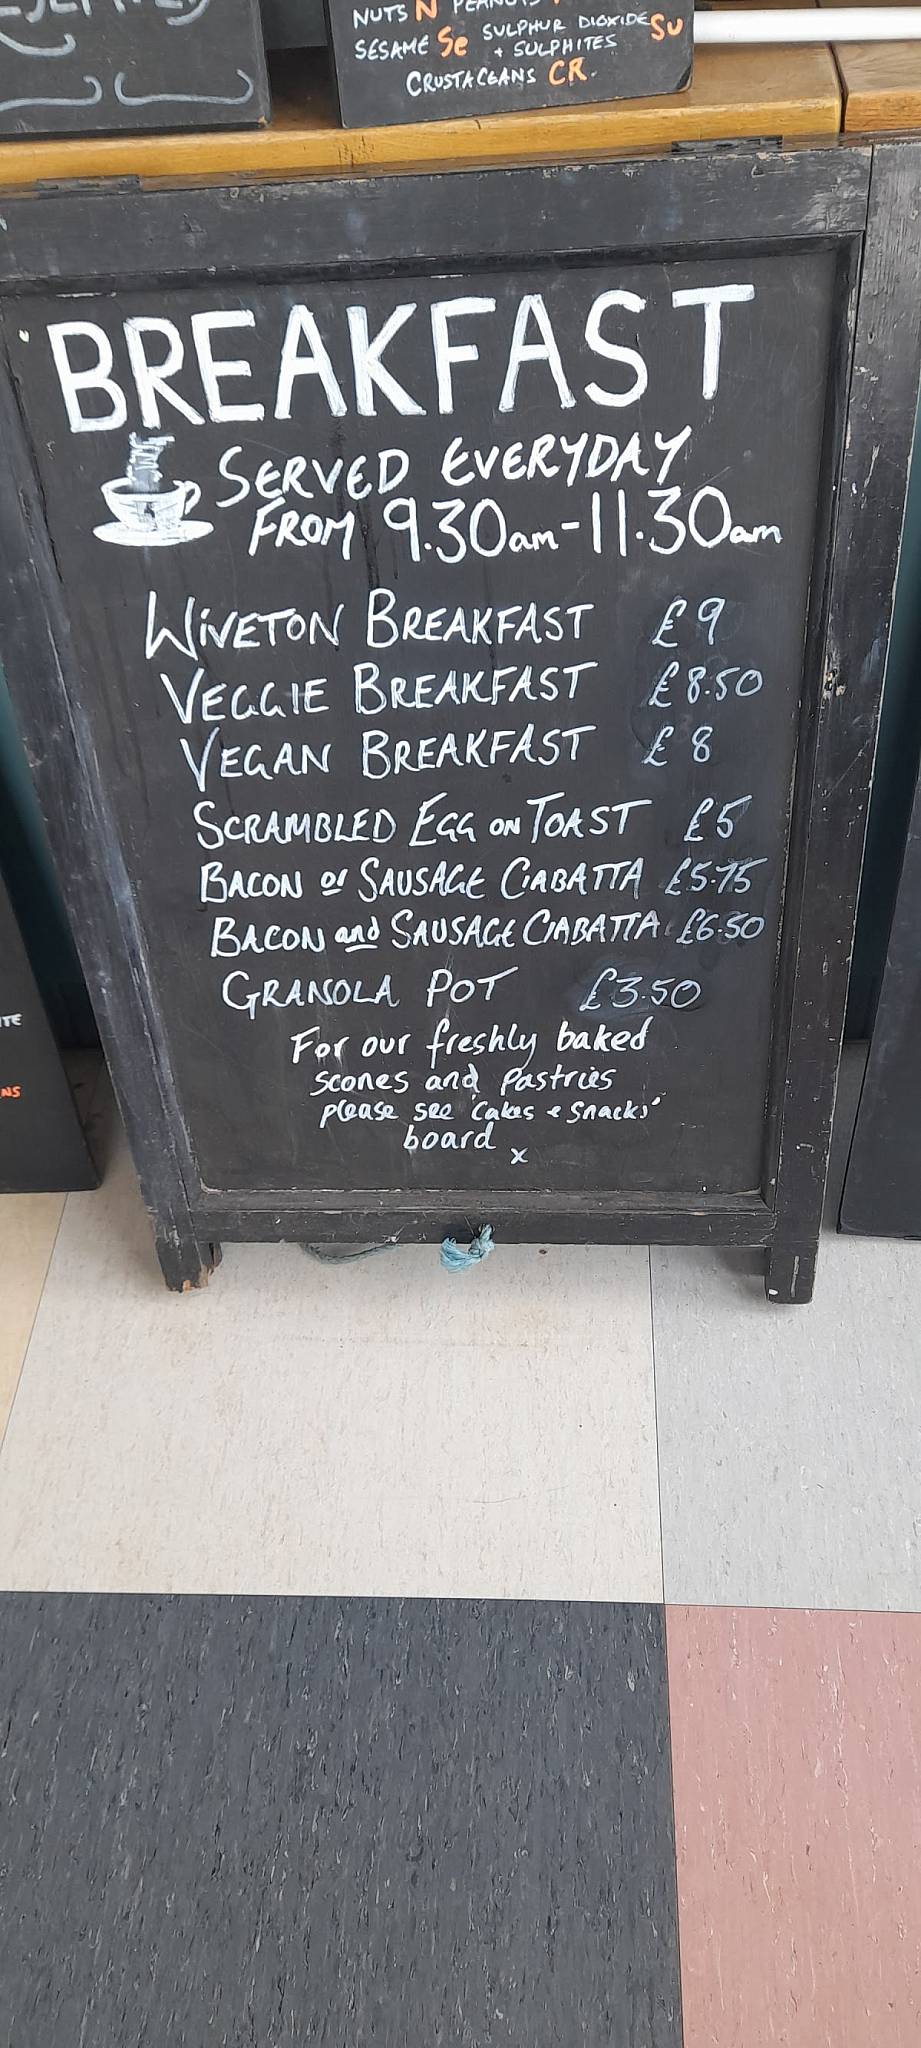 NUTS N PEANUTS
SESAME Se SULPHUR DIOXIDE + SULPHITES Su
CRUSTACEANS CR.
BREAKFAST
SERVED EVERYDAY
FROM 9.30am-11.30am
WIVETON BREAKFAST £9
VEGGIE BREAKFAST £8.50
VEGAN BREAKFAST £8
SCRAMBLED EGG ON TOAST £5
BACON or SAUSAGE CIABATTA £5.75
BACON and SAUSAGE CIABATTA £6.50
GRANOLA POT £3.50
For our freshly baked
scones and pastries
please see 'Cakes + Snacks'
board x